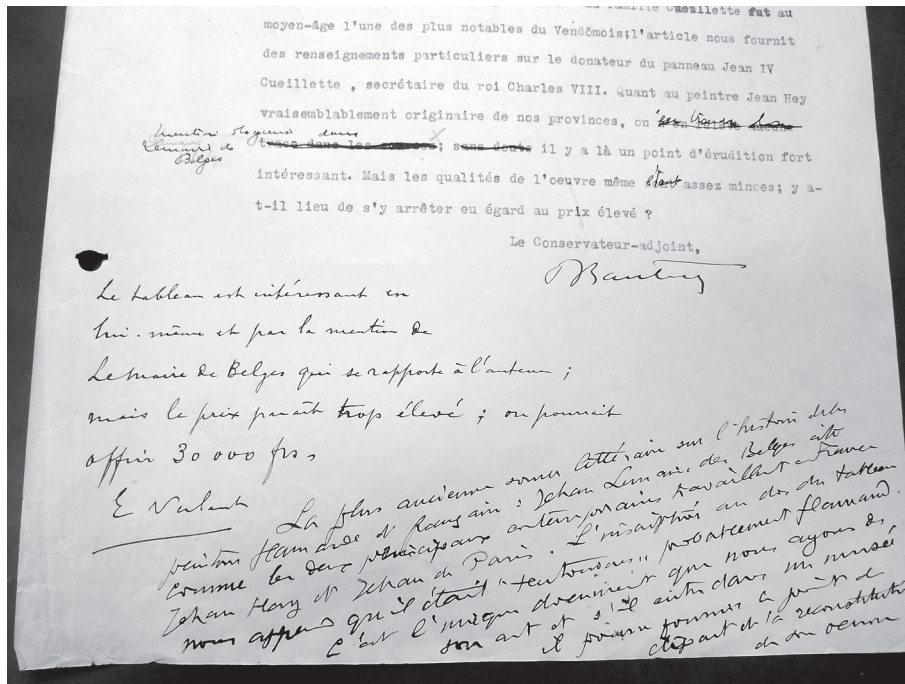 famille Cueillette fut au
moyen-Age l'une des plus notables du Vendômois;l'article nous fournit
des renseignements particuliers sur le donateur du panneau Jean IV
Cueillette , secrétaire du roi Charles VIII. Quant au peintre Jean Hey
vraisemblablement originaire de nos provinces, on
mention élogieuse dans
Lemaire de
Belges
trace dans les sources; sans doute il y a là un point d'érudition fort
intéressant. Mais les qualités de l'oeuvre même étant assez minces; y a-
t-il lieu de s'y arrêter eu égard au prix élevé ?
Le Conservateur-adjoint,
Le tableau est intéressant en
lui-même et par la mention de
Lemaire de Belges qui se rapporte à l'auteur ;
mais le prix paraît trop élevé ; on pourrait
offrir 30 000 frs.
La plus ancienne source littéraire sur l'histoire des
peintres flamands et français : Jehan Lemaire des Belges cite
comme les deux principaux contemporains travaillant en France
Jehan Hay et Jehan de Paris. L'inscription au dos du tableau
nous apprend qu'il était "teutonicus" probablement flamand.
C'est l'unique document que nous ayons de
son art et s'il entre dans un musée
il pourra fournir le point de
départ de la reconstitution
de son oeuvre